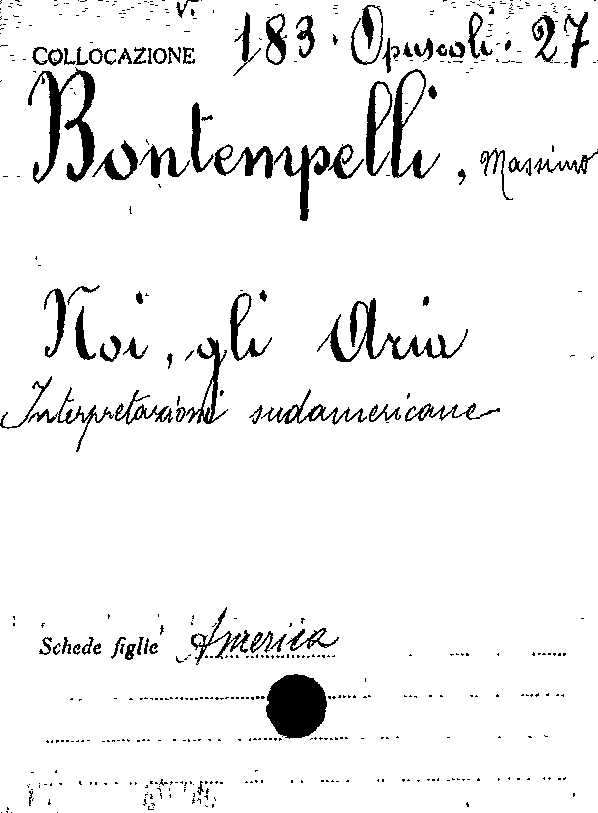 V.
COLLOCAZIONE 183. Opuscoli. 27
Bontempelli, Massimo
Noi, gli Aria
Interpretazioni sudamericane
Schede figlie America